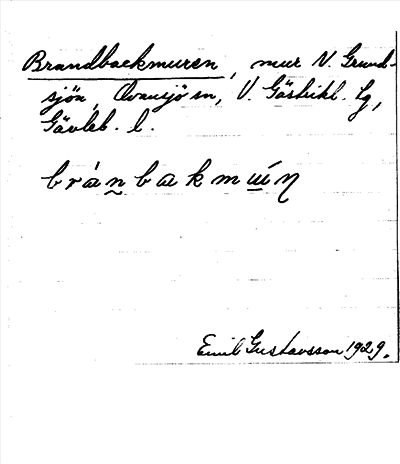 Brandbackmuren, mur N. Grund-
sjön, Ovansjö sn, V. Gästrikl. tg,
Gävleb. l.
bránbakmɯíη
Emil Gustavsson 1929.